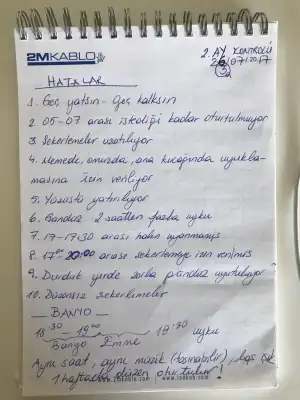 2MKABLO
2. AY KONTROLÜ
26/07/2017
3
HATALAR
1. Geç yatsın - Geç kalksın
2. 05-07 arası istediği kadar oturtulmuyor
3. Şekerlemeler uzatılıyor
4. Memede, omuzda, ana kucağında uyukla-
masına izin veriliyor
5. Yüzüstü yatırılıyor
6. Gündüz 2 saatten fazla uyku
7. 17-17:30 arası halen uyanmamış
8. 17:00 20:00 arası şekerlemeye izin verilmiş
9. Durduk yerde zorla gündüz uyutuluyor
10. Düzensiz şekerlemeler
BANYO
18:30 19:00 19:30 uyku
Banyo Emme
Aynı saat, aynı müzik
1 haftada düzen oturtulur!